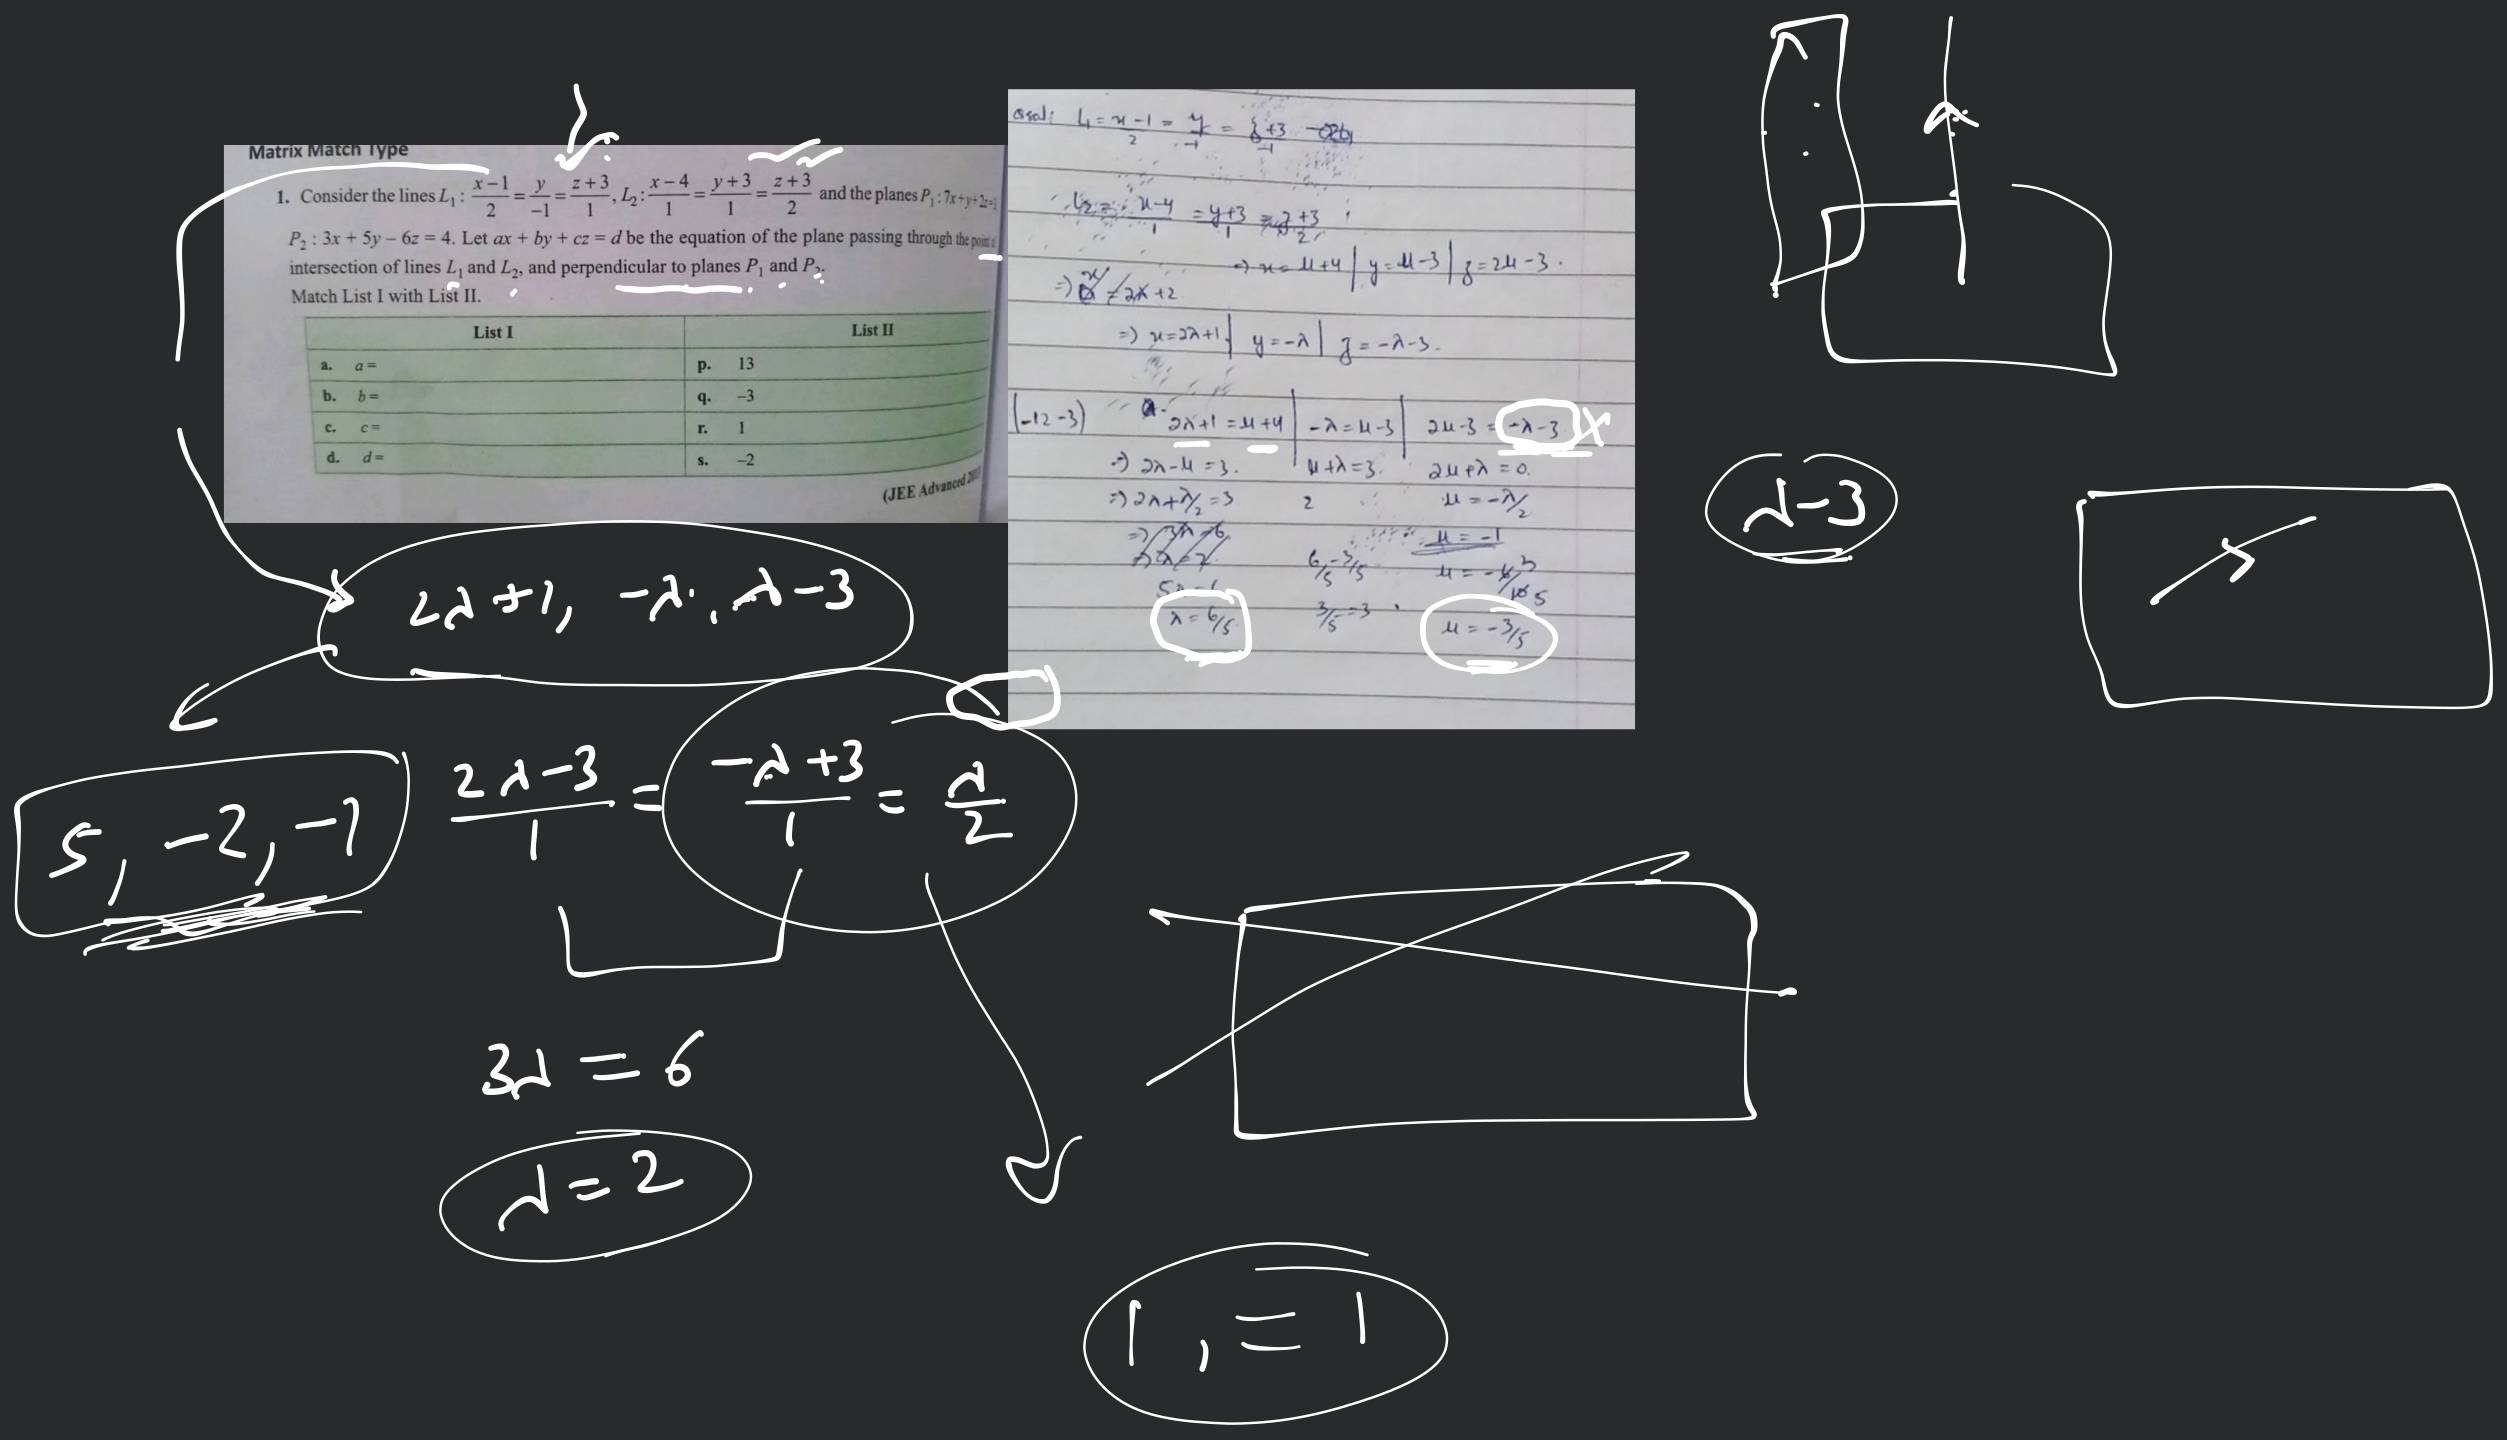 Matrix Match Type
1. Consider the lines L₁ : (x−1)/2 = y/−1 = (z+3)/1, L₂ : (x−4)/1 = (y+3)/1 = (z+3)/2 and the planes P₁ : 7x+y+2z=
P₂ : 3x + 5y − 6z = 4. Let ax + by + cz = d be the equation of the plane passing through the point
intersection of lines L₁ and L₂, and perpendicular to planes P₁ and P₂.
Match List I with List II.
List I List II
a. a = p. 13
b. b = q. −3
c. c = r. 1
d. d = s. −2
(JEE Advanced
L₁ = (x−1)/2 = y/−1 = (z+3)/−1
L₂ = (x−4)/1 = (y+3)/1 = (z+3)/2
⇒ x = μ+4 | y = μ−3 | z = 2μ−3.
⇒ x = 2λ+1 | y = −λ | z = −λ−3.
(−12−3) 2λ+1 = μ+4 | −λ = μ−3 | 2μ−3 = −λ−3 X
⇒ 2λ−μ = 3. μ+λ = 3. 2μ+λ = 0.
⇒ 2λ+λ/2 = 3 2 μ = −λ/2
μ = −1
λ = 6/5 3/5 = 3 μ = −3/5
λ−3
2λ+1, −λ, λ−3
(2λ−3)/1 = (−λ+3)/1 = λ/2
5, −2, −1
3λ = 6
λ = 2
1, = 1